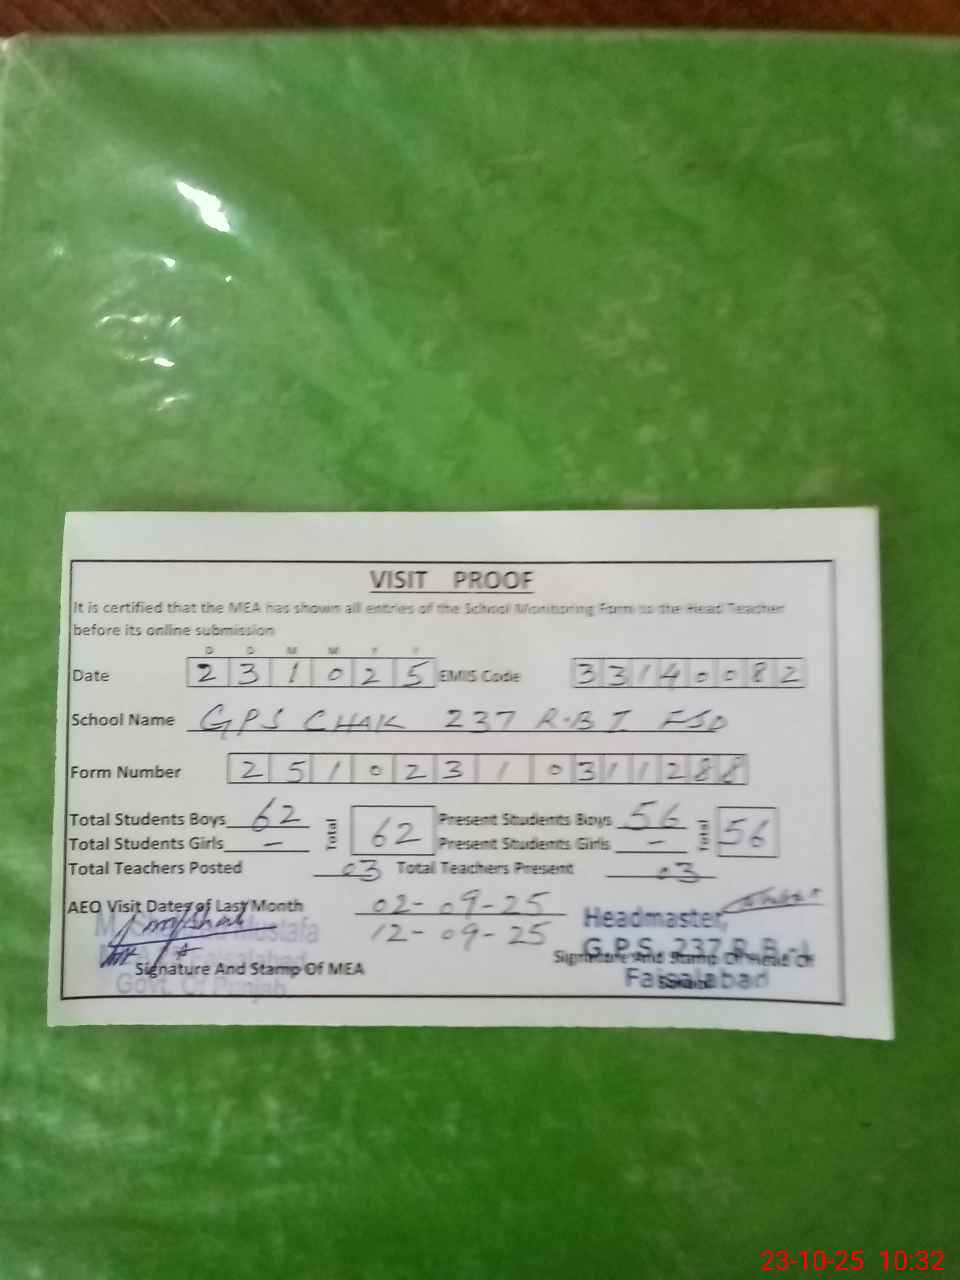 VISIT PROOF
It is certified that the MEA has shown all entries of the School Monitoring Form to the Head Teacher
before its online submission
D D M M Y Y
Date 2 3 1 0 2 5 EMIS Code 3 3 1 4 0 0 8 2
School Name GPS CHAK 237 R.B I FSD
Form Number 2 5 1 0 2 3 1 0 3 1 1 2 8 8
Total Students Boys 62 Total 62 Present Students Boys 56 Total 56
Total Students Girls — Present Students Girls —
Total Teachers Posted 03 Total Teachers Present 03
AEO Visit Dates of Last Month 02-09-25
12-09-25
Headmaster,
Mustafa
G.P.S. 237 R.B.-I
Faisalabad
Faisalabad
Signature And Stamp Of MEA
Signature And Stamp Of Head Of
Govt. Of Punjab
23-10-25 10:32